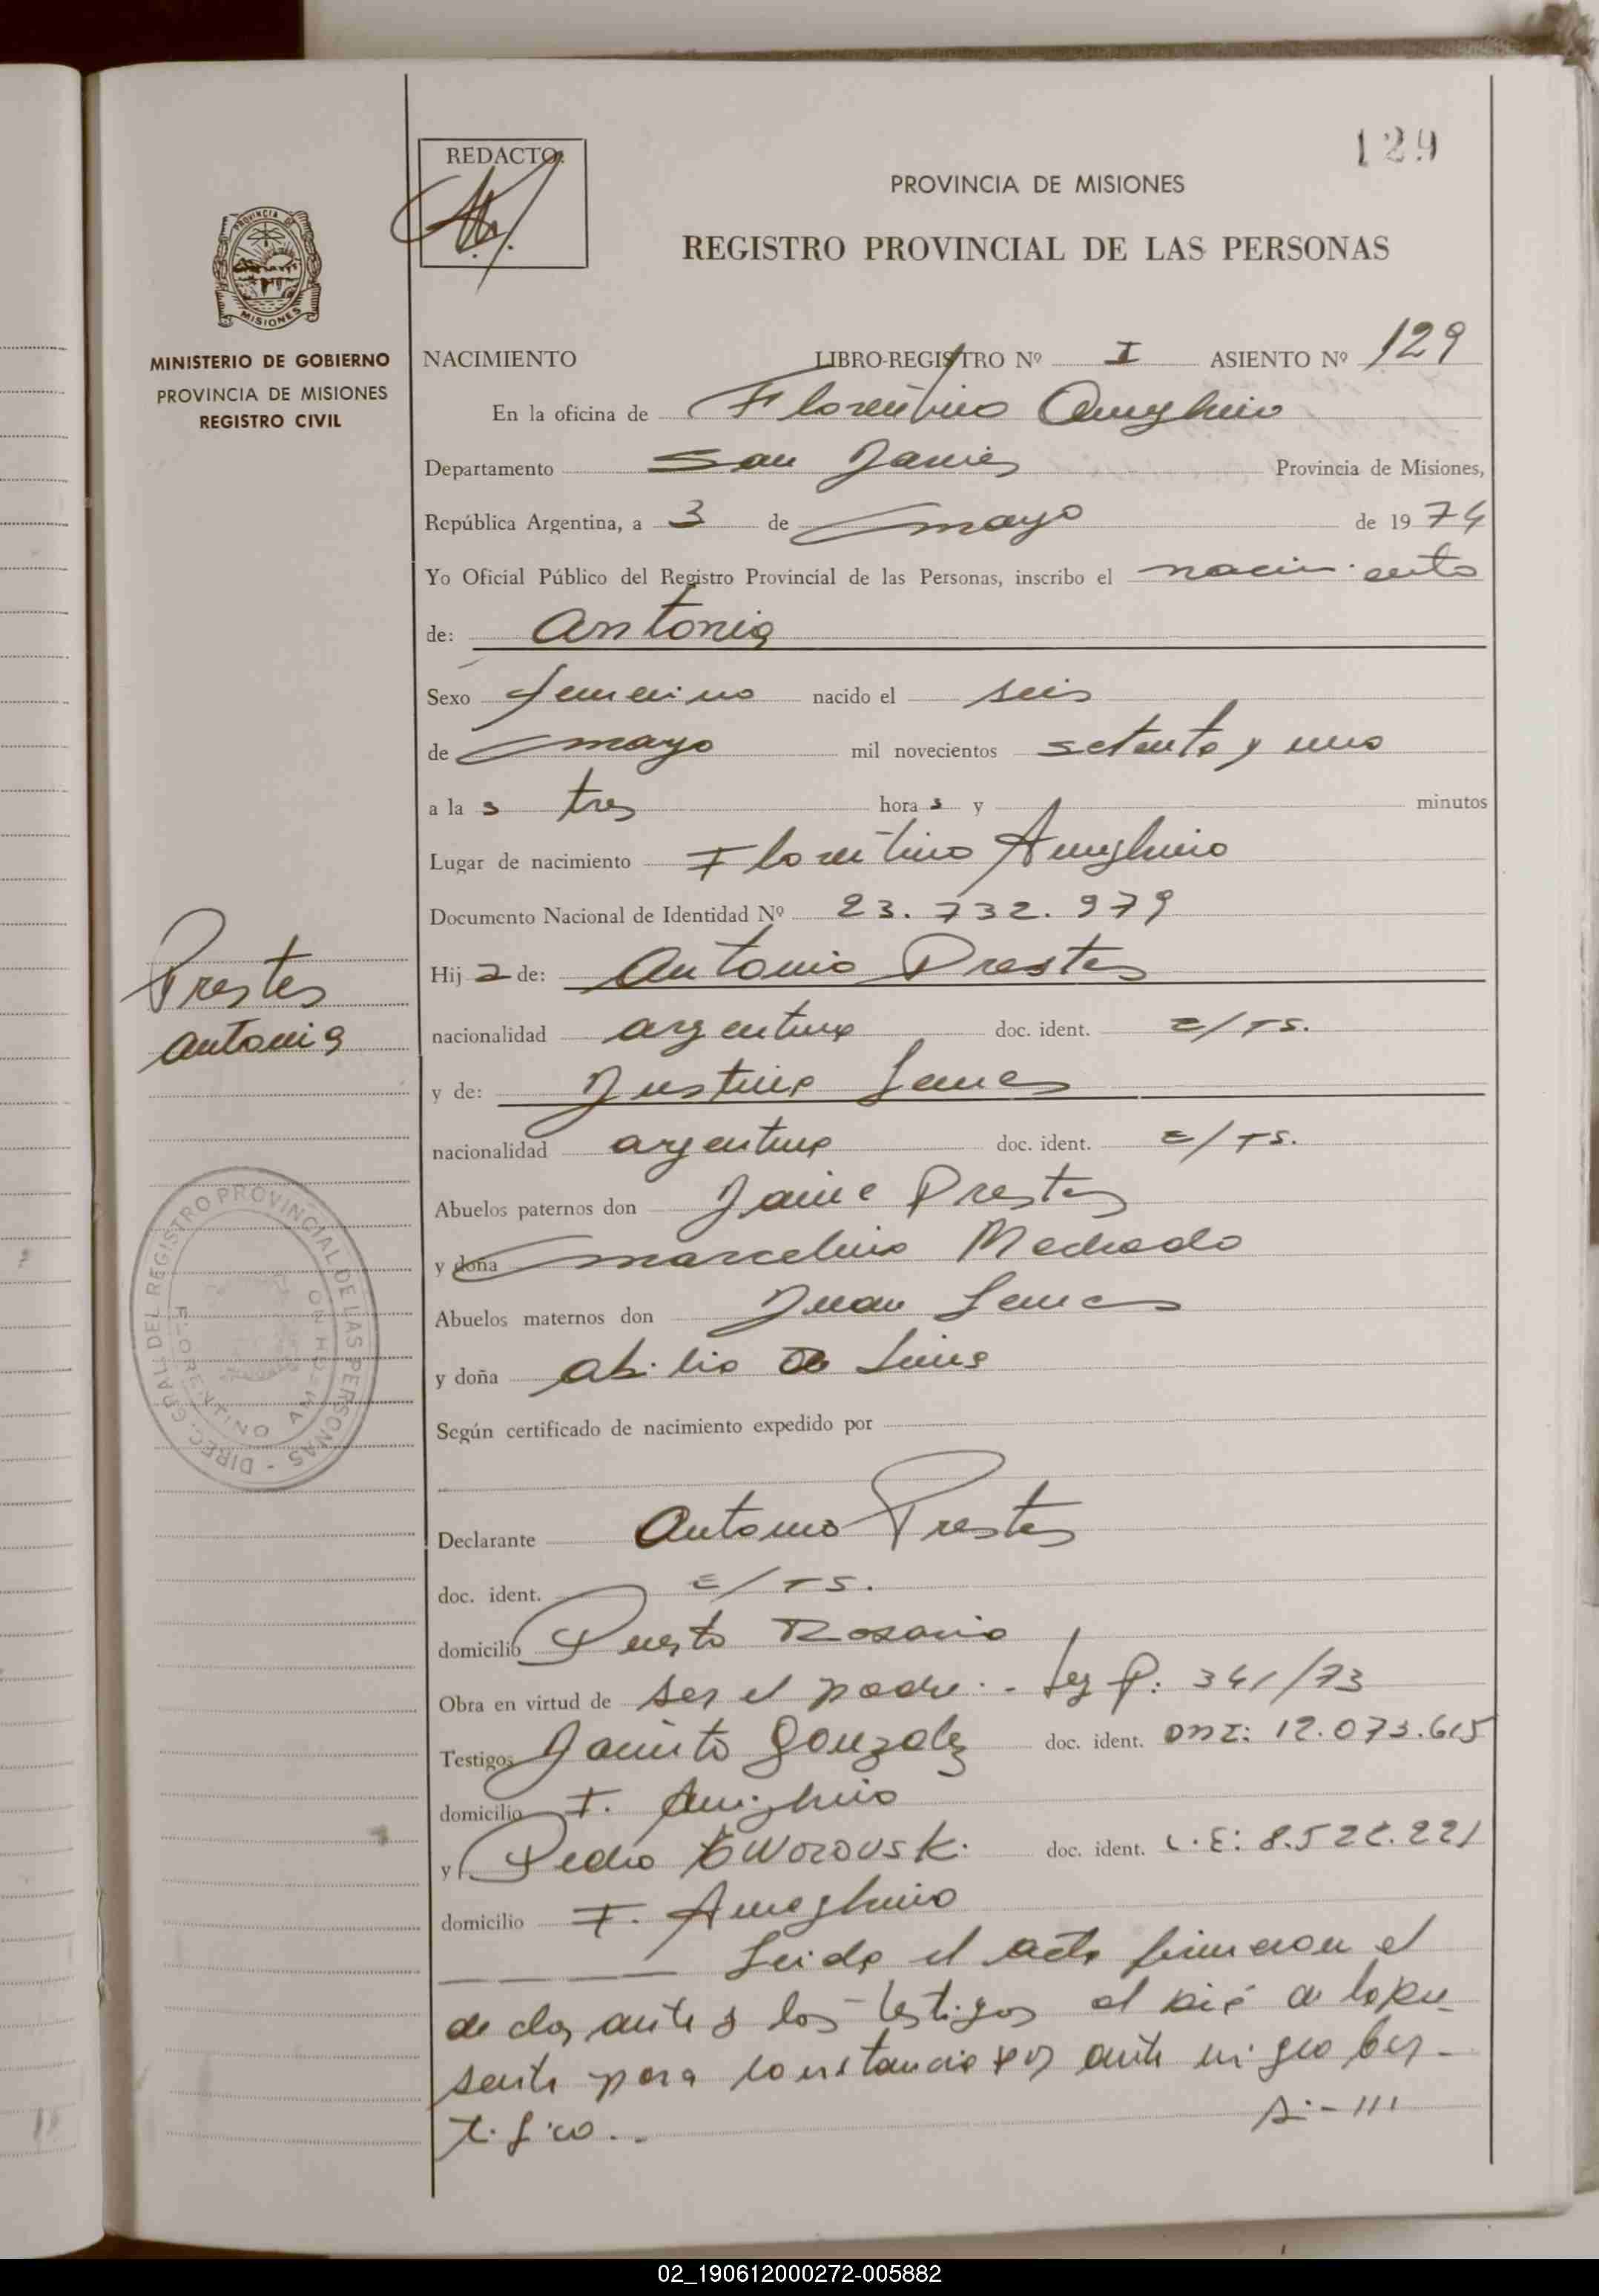 129
REDACTO:
PROVINCIA DE MISIONES
REGISTRO PROVINCIAL DE LAS PERSONAS
PROVINCIA DE
MISIONES
MINISTERIO DE GOBIERNO
PROVINCIA DE MISIONES
REGISTRO CIVIL
NACIMIENTO LIBRO-REGISTRO Nº I ASIENTO Nº 129
En la oficina de Florentino Ameghino
Departamento San Javier Provincia de Misiones,
República Argentina, a 3 de mayo de 19 74
Yo Oficial Público del Registro Provincial de las Personas, inscribo el nacimiento
de: Antonia
Sexo femenino nacido el seis
de mayo mil novecientos setenta y uno
a la s tres hora s y minutos
Lugar de nacimiento Florentino Ameghino
Documento Nacional de Identidad Nº 23.732.979
Hij a de: Antonio Prestes
nacionalidad argentina doc. ident.
y de: Justina
nacionalidad argentina doc. ident.
Abuelos paternos don Jaime Prestes
y doña Marcelina Machado
Abuelos maternos don Juan
y doña Abilia de Lima
Según certificado de nacimiento expedido por
Declarante Antonio Prestes
doc. ident.
domicilio Puerto Rosario
Obra en virtud de ser el padre.- Leg P: 341/73
Testigos Jacinto Gonzalez doc. ident. DNI: 12.073.615
domicilio F. Ameghino
y Pedro doc. ident. L.E: 8.522.221
domicilio F. Ameghino
Leida el acta firmaron el
declarante y los testigos al pié de la pre-
sente para constancia por ante mi que cer-
tifico.-
Prestes
Antonia
DIREC. GRAL. DEL REGISTRO PROVINCIAL DE LAS PERSONAS -
FLORENTINO AMEGHINO
02_190612000272-005882